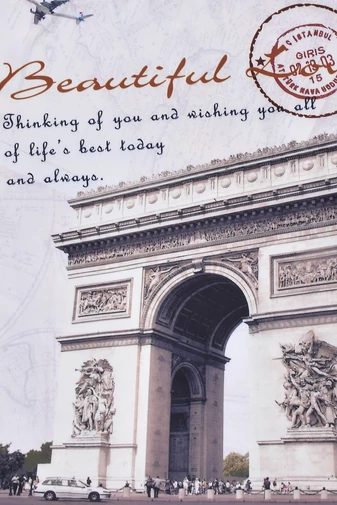 Beautiful
Thinking of you and wishing you all
of life's best today
and always.
ISTANBUL
GIRIS
15